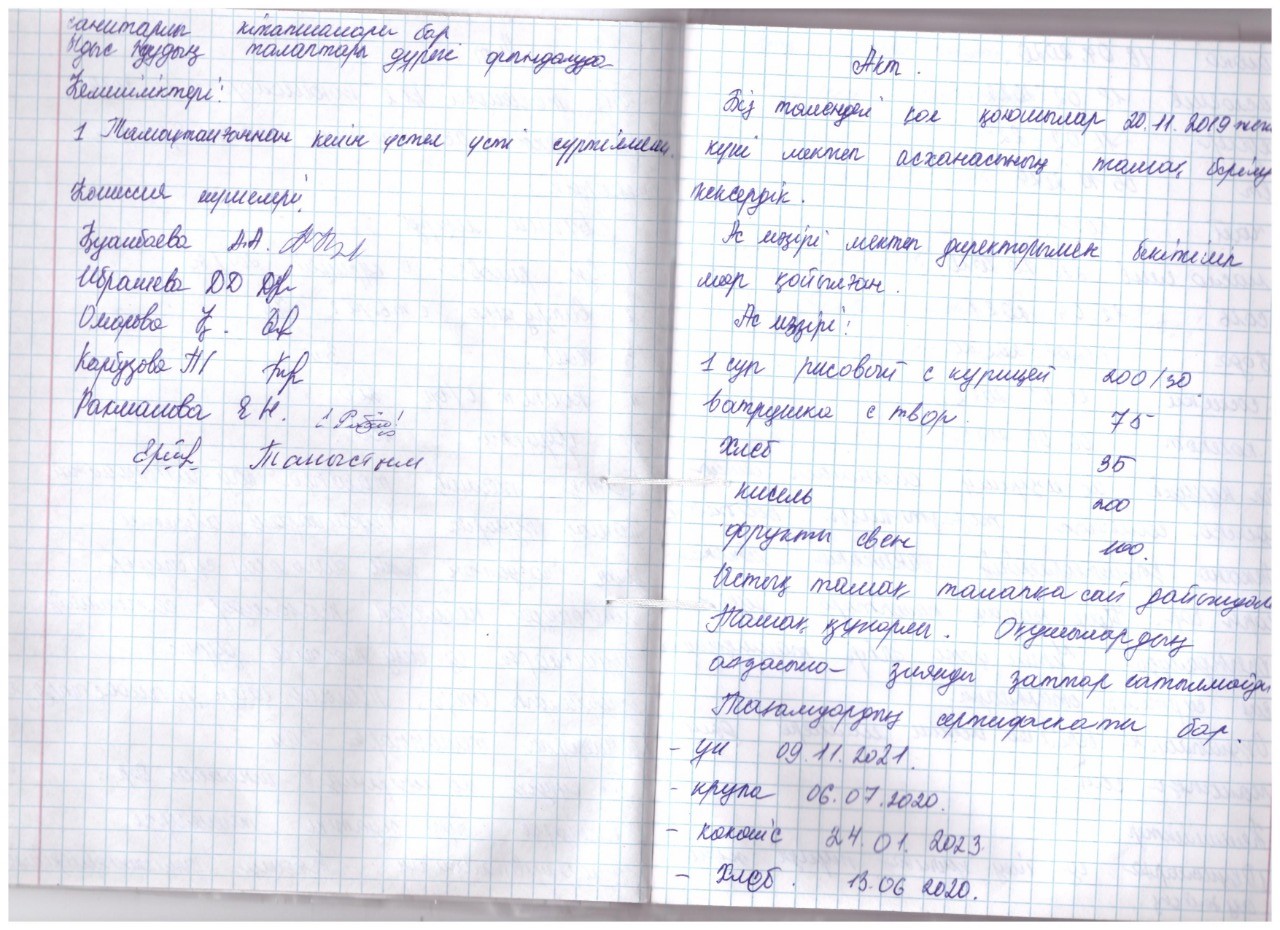 санитарлы кітапшалары бар
Ыдыс жудың талаптары дұрыс орындалуда
Кемшіліктері:
1 Тамақтанғаннан кейін үстел үсті сүртілмеген.
Комиссия мүшелері
Қуанбаева А.А.
Ибрашева Д Д
Омарова Қ.
Карбузова
Рахманова Е Н.
Таныстым
Акт.
Біз төмендегі қол қоюшылар 20.11.2019 жыл
күні мектеп асханасының тамақ берілу
тексердік.
Ас мәзірі мектеп директорымен бекітіліп
мөр қойылған.
Ас мәзірі:
1 суп рисовый с курицей 200/30
ватрушка с твор. 75
Хлеб 35
кисель 200
фрукты свеж 100.
Ыстық тамақ талапқа сай дайындал
Тамақ құнарлы. Оқушылардың
ағзасына зиянды заттар сатылмайды
Тағамдардың сертификаты бар.
- ұн 09.11.2021.
- крупа 06.07.2020.
- 24.01.2023
- Хлеб. 13.06 2020.